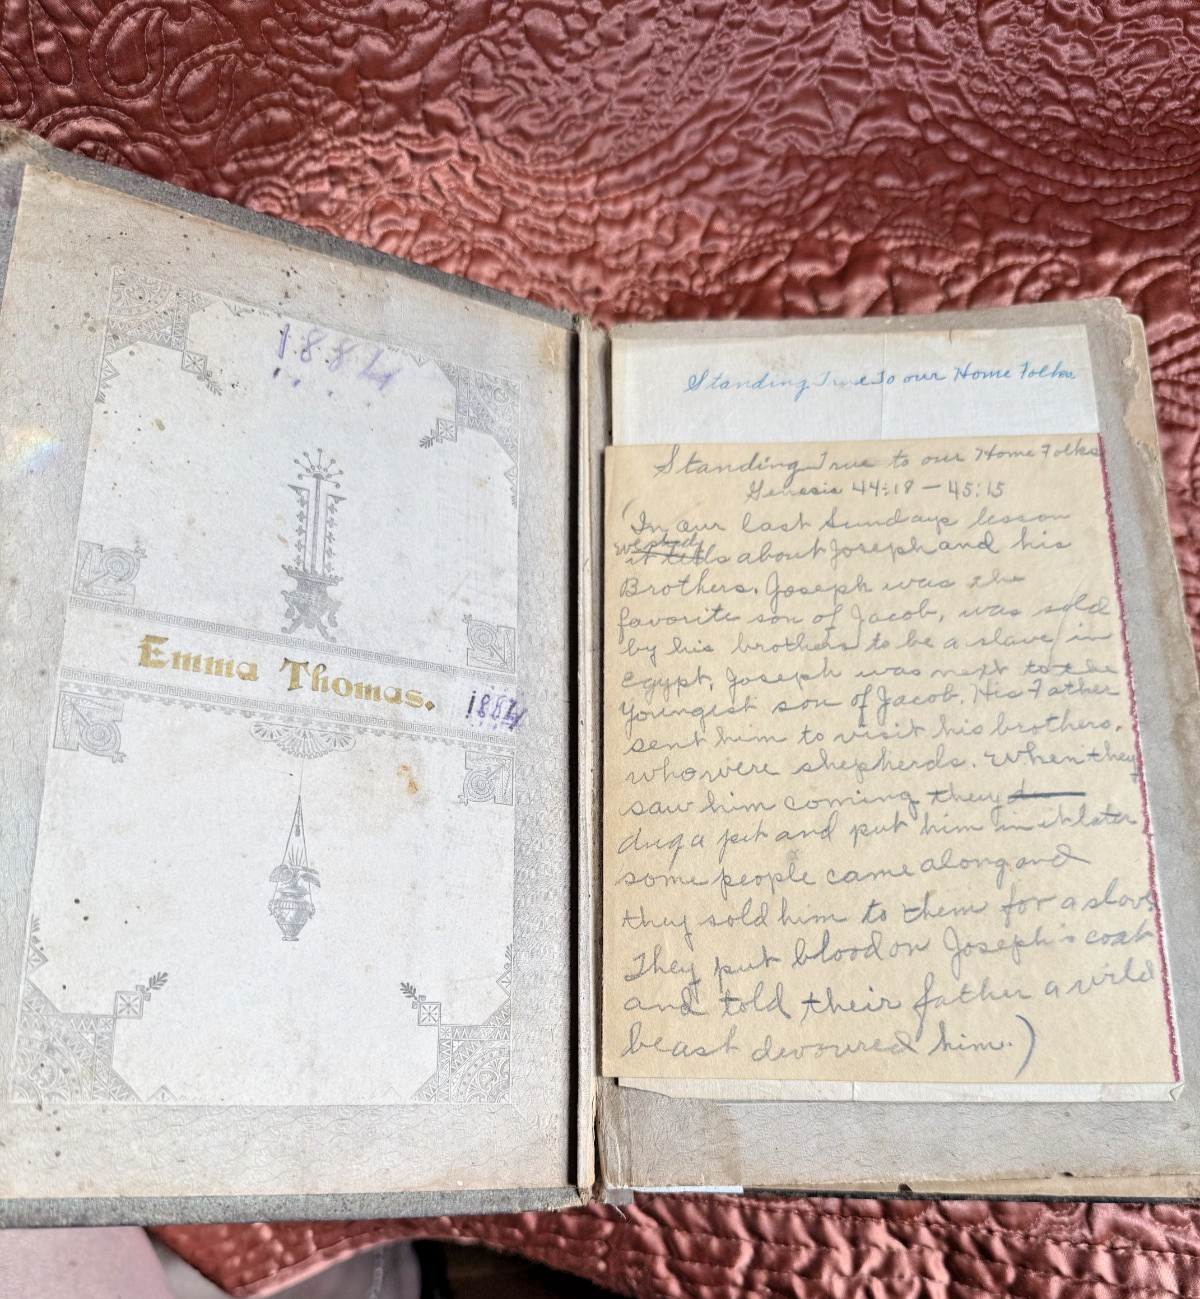 1884
Emma Thomas.
1884
Standing True To our Home Folks
Standing True to our Home Folks
Genesis 44:18 – 45:15
(In our last Sundays lesson
we study
it tells about Joseph and his
Brothers. Joseph was the
favorite son of Jacob, was sold
by his brothers to be a slave in
Egypt, Joseph was next to the
Youngist son of Jacob. His Father
sent him to visit his brothers.
who were shepherds. When they
saw him coming they
dug a pit and put him in it later
some people came along and
they sold him to them for a slave
They put blood on Joseph's coat
and told their father a wild
beast devoured him.)